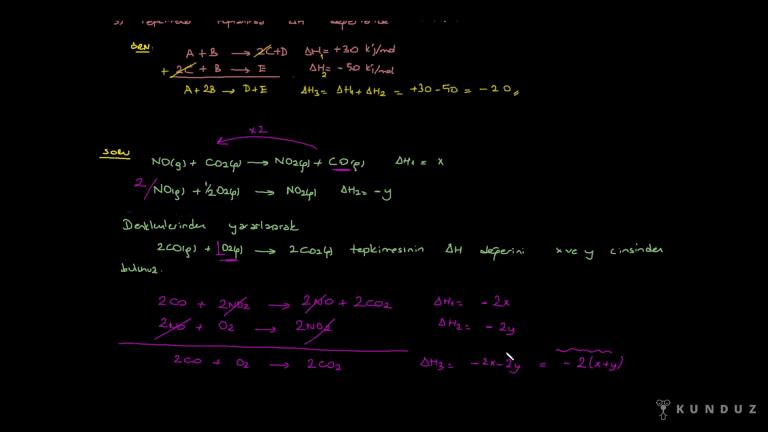 ÖRN:
A + B → 2C + D ΔH₁ = +30 kj/mol
+ 2C + B → E ΔH₂ = -50 kj/mol
A + 2B → D + E ΔH₃ = ΔH₁ + ΔH₂ = +30 - 50 = -20
x2
SORU
NO(g) + CO2(g) → NO2(g) + CO(g) ΔH₁ = x
2/ NO(g) + 1/2O2(g) → NO2(g) ΔH₂ = -y
Denklemlerinden yararlanarak
2CO(g) + 1O2(g) → 2CO2(g) tepkimesinin ΔH değerini x ve y cinsinden
bulunuz.
2CO + 2NO2 → 2NO + 2CO2 ΔH₁ = -2x
2NO + O2 → 2NO2 ΔH₂ = -2y
2CO + O2 → 2CO2 ΔH₃ = -2x-2y = -2(x+y)
KUNDUZ